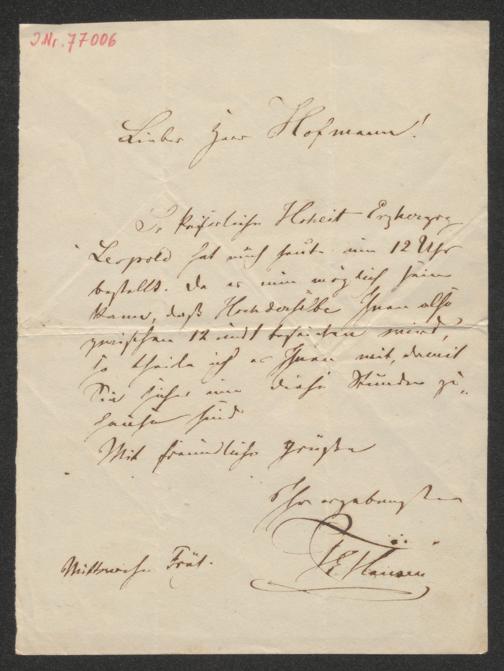 J.Nr. 77006
Lieber Herr Hofmann!
Se kaiserliche Hoheit Erzherzog
Leopold hat mich heute um 12 Uhr
bestellt. Da es nun möglich sein
kann, daß Hochderselbe Ihnen also
zwischen 12 und 1 besuchen wird,
so theile ich es Ihnen mit, damit
Sie sicher um diese Stunden zu
Hause sind
Mit freundlichen Grüßen
Ihr ergebenster
Th. Hansen
Mittwoch Früh.